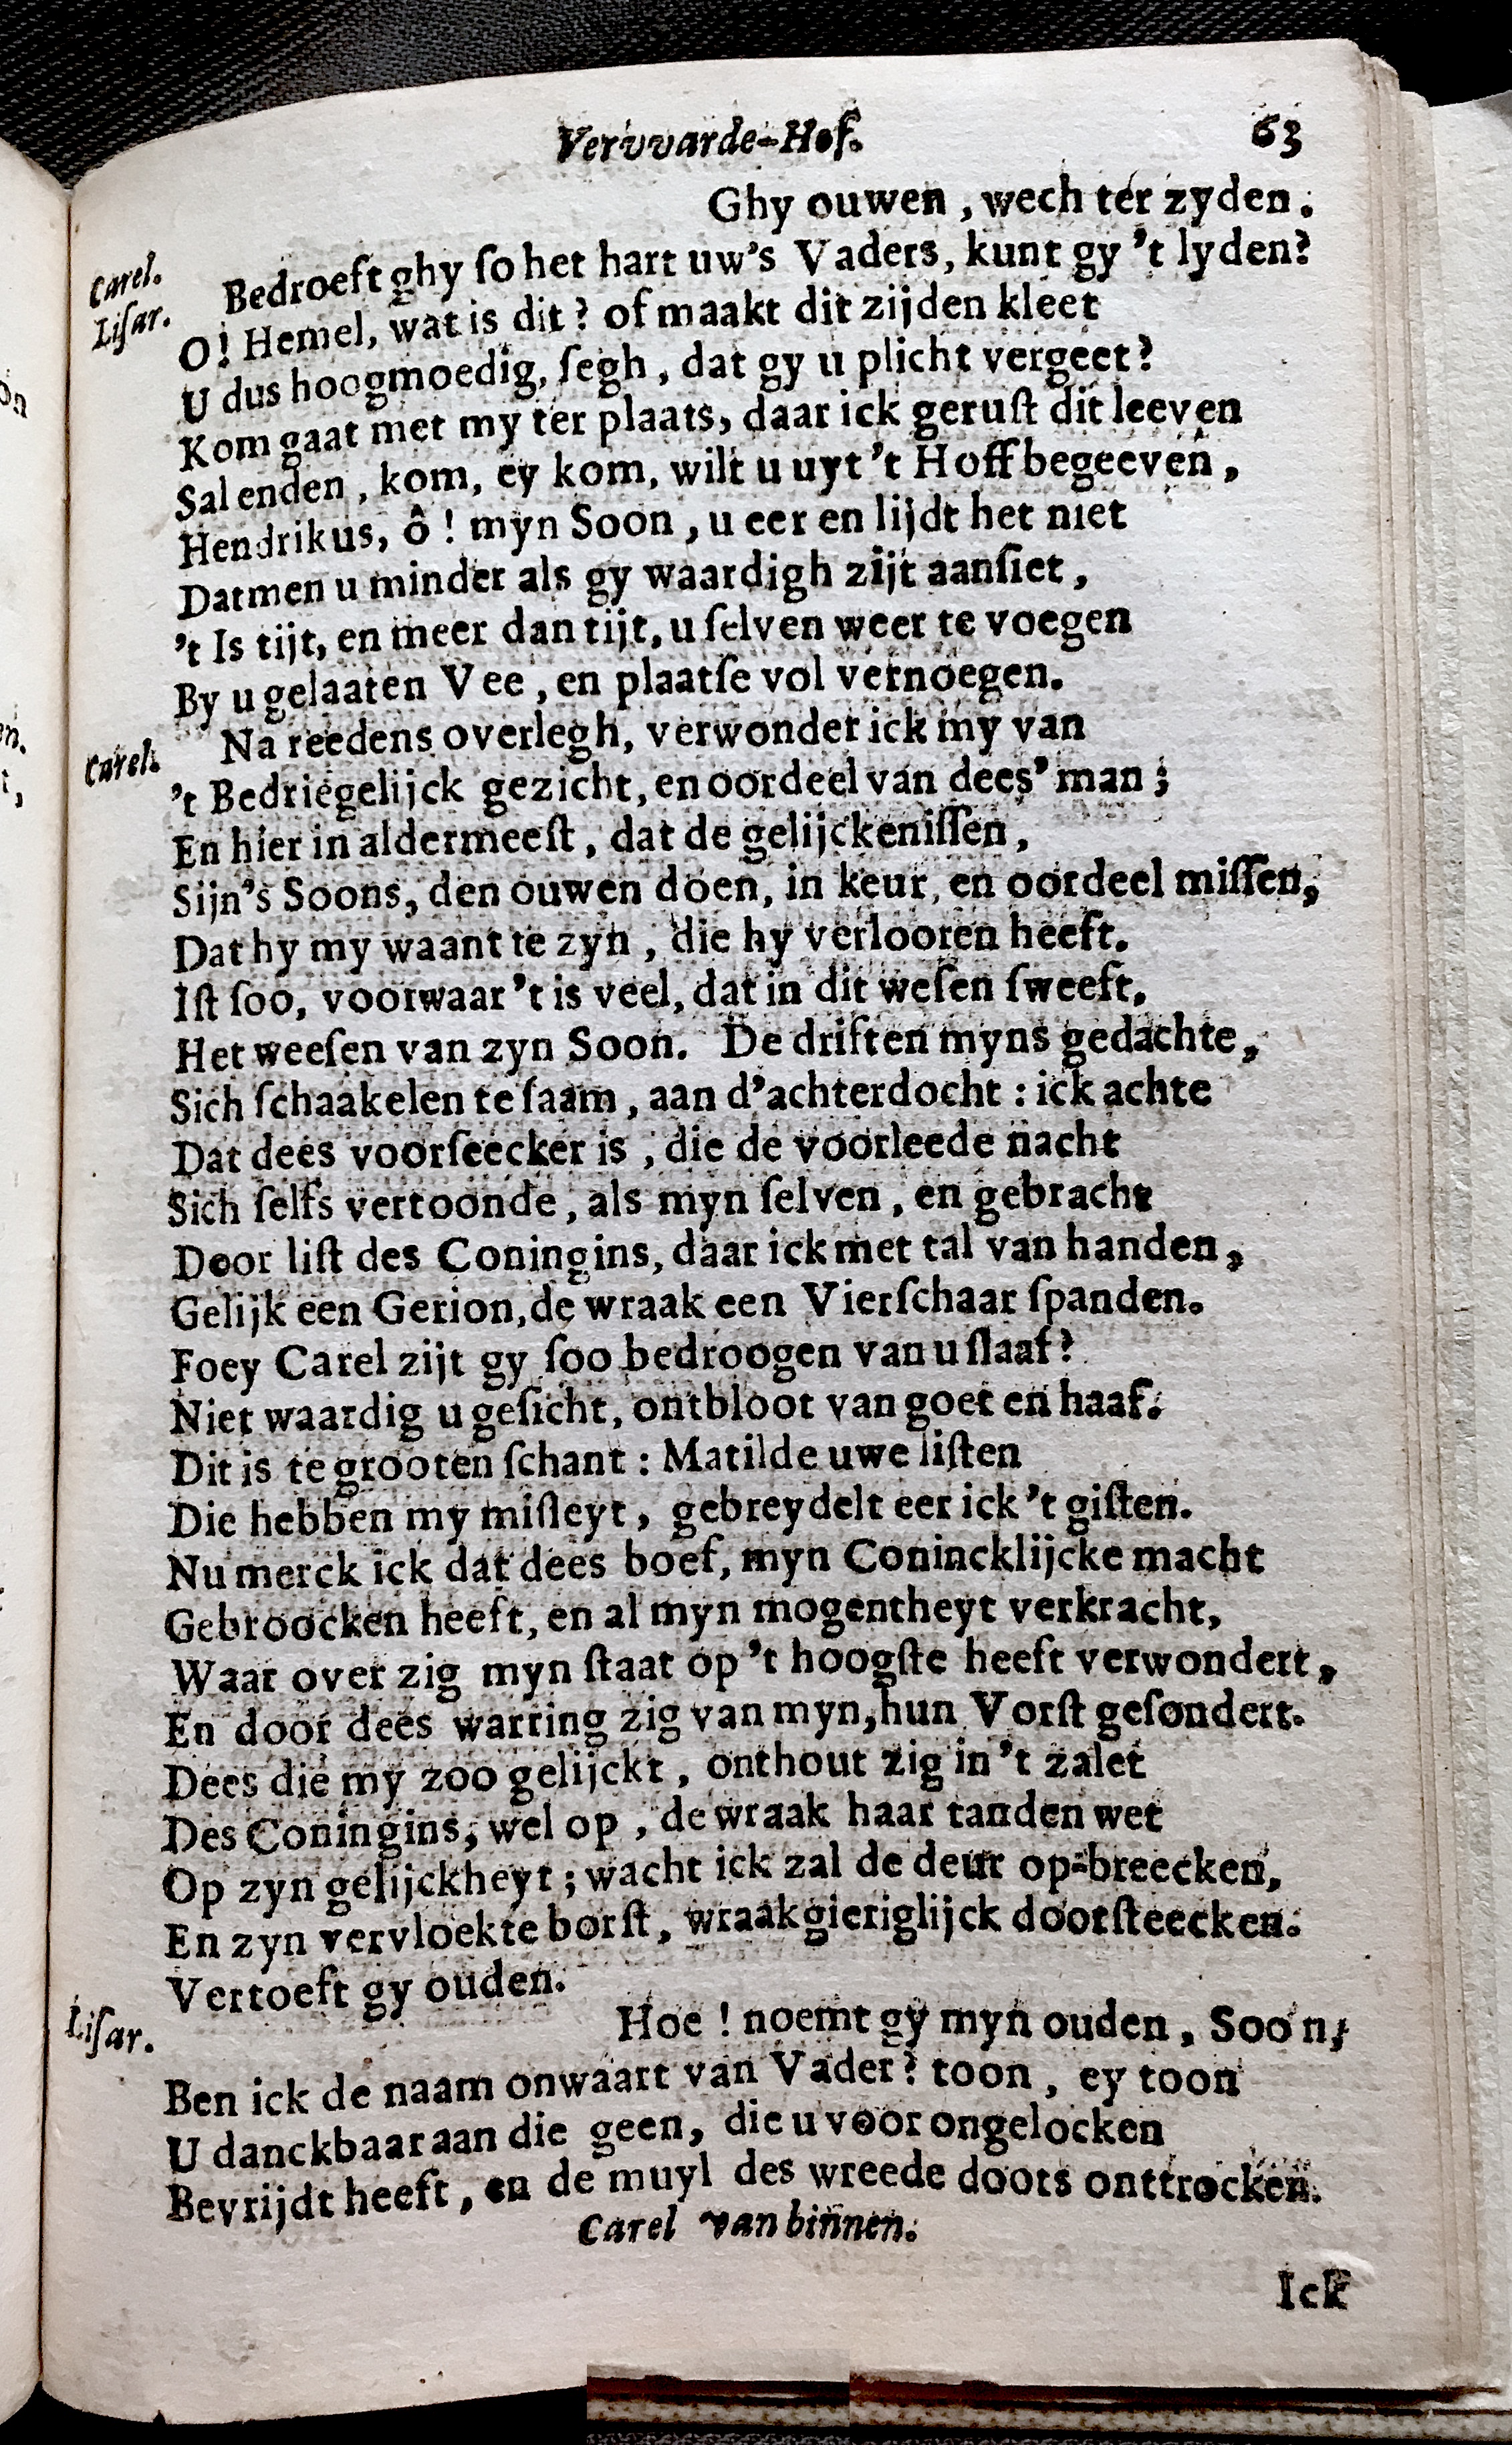 Vervvarde-Hof. 63
Ghy ouwen, wech ter zyden.
Carel.
Lisar. Bedroeft ghy ſo het hart uw's Vaders, kunt gy 't lyden?
O! Hemel, wat is dit? of maakt dit zijden kleet
U dus hoogmoedig, ſegh, dat gy u plicht vergeet?
Kom gaat met my ter plaats, daar ick geruſt dit leeven
Sal enden, kom, ey kom, wilt u uyt 't Hoff begeeven,
Hendrikus, ô! myn Soon, u eer en lijdt het niet
Datmen u minder als gy waardigh zijt aanſiet,
't Is tijt, en meer dan tijt, u ſelven weer te voegen
By u gelaaten Vee, en plaatſe vol vernoegen.
Carel. Na reedens overlegh, verwonder ick my van
't Bedriegelijck gezicht, en oordeel van dees' man;
En hier in aldermeeſt, dat de gelijckeniſſen,
Sijn's Soons, den ouwen doen, in keur, en oordeel miſſen,
Dat hy my waant te zyn, die hy verlooren heeft.
Iſt ſoo, voorwaar 't is veel, dat in dit weſen ſweeft,
Het weeſen van zyn Soon. De driften myns gedachte,
Sich ſchaakelen te ſaam, aan d'achterdocht: ick achte
Dat dees voorſeecker is, die de voorleede nacht
Sich ſelfs vertoonde, als myn ſelven, en gebracht
Door liſt des Coningins, daar ick met tal van handen,
Gelijk een Gerion, de wraak een Vierſchaar ſpanden.
Foey Carel zijt gy ſoo bedroogen van u ſlaaf?
Niet waardig u geſicht, ontbloot van goet en haaf.
Dit is te grooten ſchant: Matilde uwe liſten
Die hebben my miſleyt, gebreydelt eer ick 't giſten.
Nu merck ick dat dees boef, myn Conincklijcke macht
Gebroocken heeft, en al myn mogentheyt verkracht,
Waar over zig myn ſtaat op 't hoogſte heeft verwondert,
En door dees warring zig van myn, hun Vorſt geſondert.
Dees die my zoo gelijckt, onthout zig in 't zalet
Des Coningins, wel op, de wraak haar tanden wet
Op zyn gelijckheyt; wacht ick zal de deur op-breecken,
En zyn vervloekte borſt, wraakgieriglijck doorſteecken.
Vertoeft gy ouden.
Liſar. Hoe! noemt gy myn ouden, Soon,
Ben ick de naam onwaart van Vader? toon, ey toon
U danckbaar aan die geen, die u voor ongelocken
Bevrijdt heeft, en de muyl des wreede doots onttrocken.
Carel van binnen.
Ick